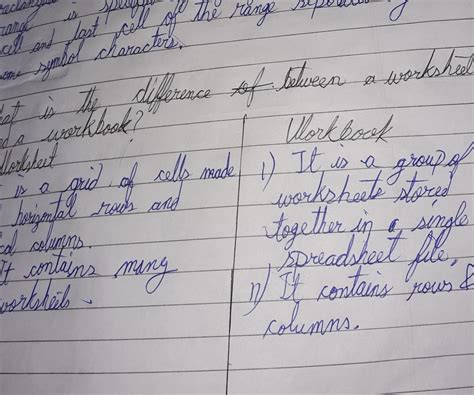 rang is
cell and last cell of the range
some symbol characters.
at is the difference of between a worksheet
d a workbook?
Worksheet
is a grid of cells made
horizontal rows and
cal columns.
It contains many
worksheets.
Workbook
i) It is a group of
worksheets stored
together in a single
spreadsheet file.
n) It contains rows &
columns.